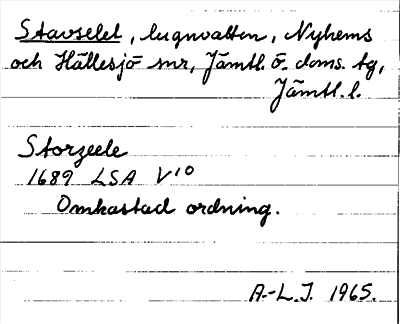 Stavselet, lugnvatten, Nyhems
och Hällesjö snr, Jämtl. ö. doms. tg,
Jämtl. l.
Storzeele
1689 LSA V10
Omkastad ordning.
A.-L.J. 1965.